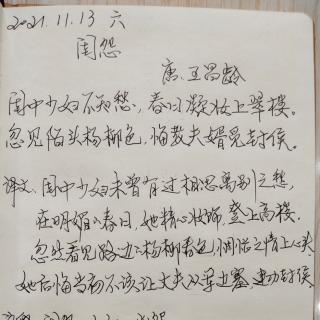 2021.11.13 六
闺怨
唐·王昌龄
闺中少妇不知愁，春日凝妆上翠楼。
忽见陌头杨柳色，悔教夫婿觅封侯。
译文、闺中少妇未曾有过相思离别之愁，
在明媚的春日，她精心妆饰，登上高楼。
忽然看见路边的杨柳春色，惆怅之情上心头
她后悔当初不该让丈夫从军边塞，建功封侯